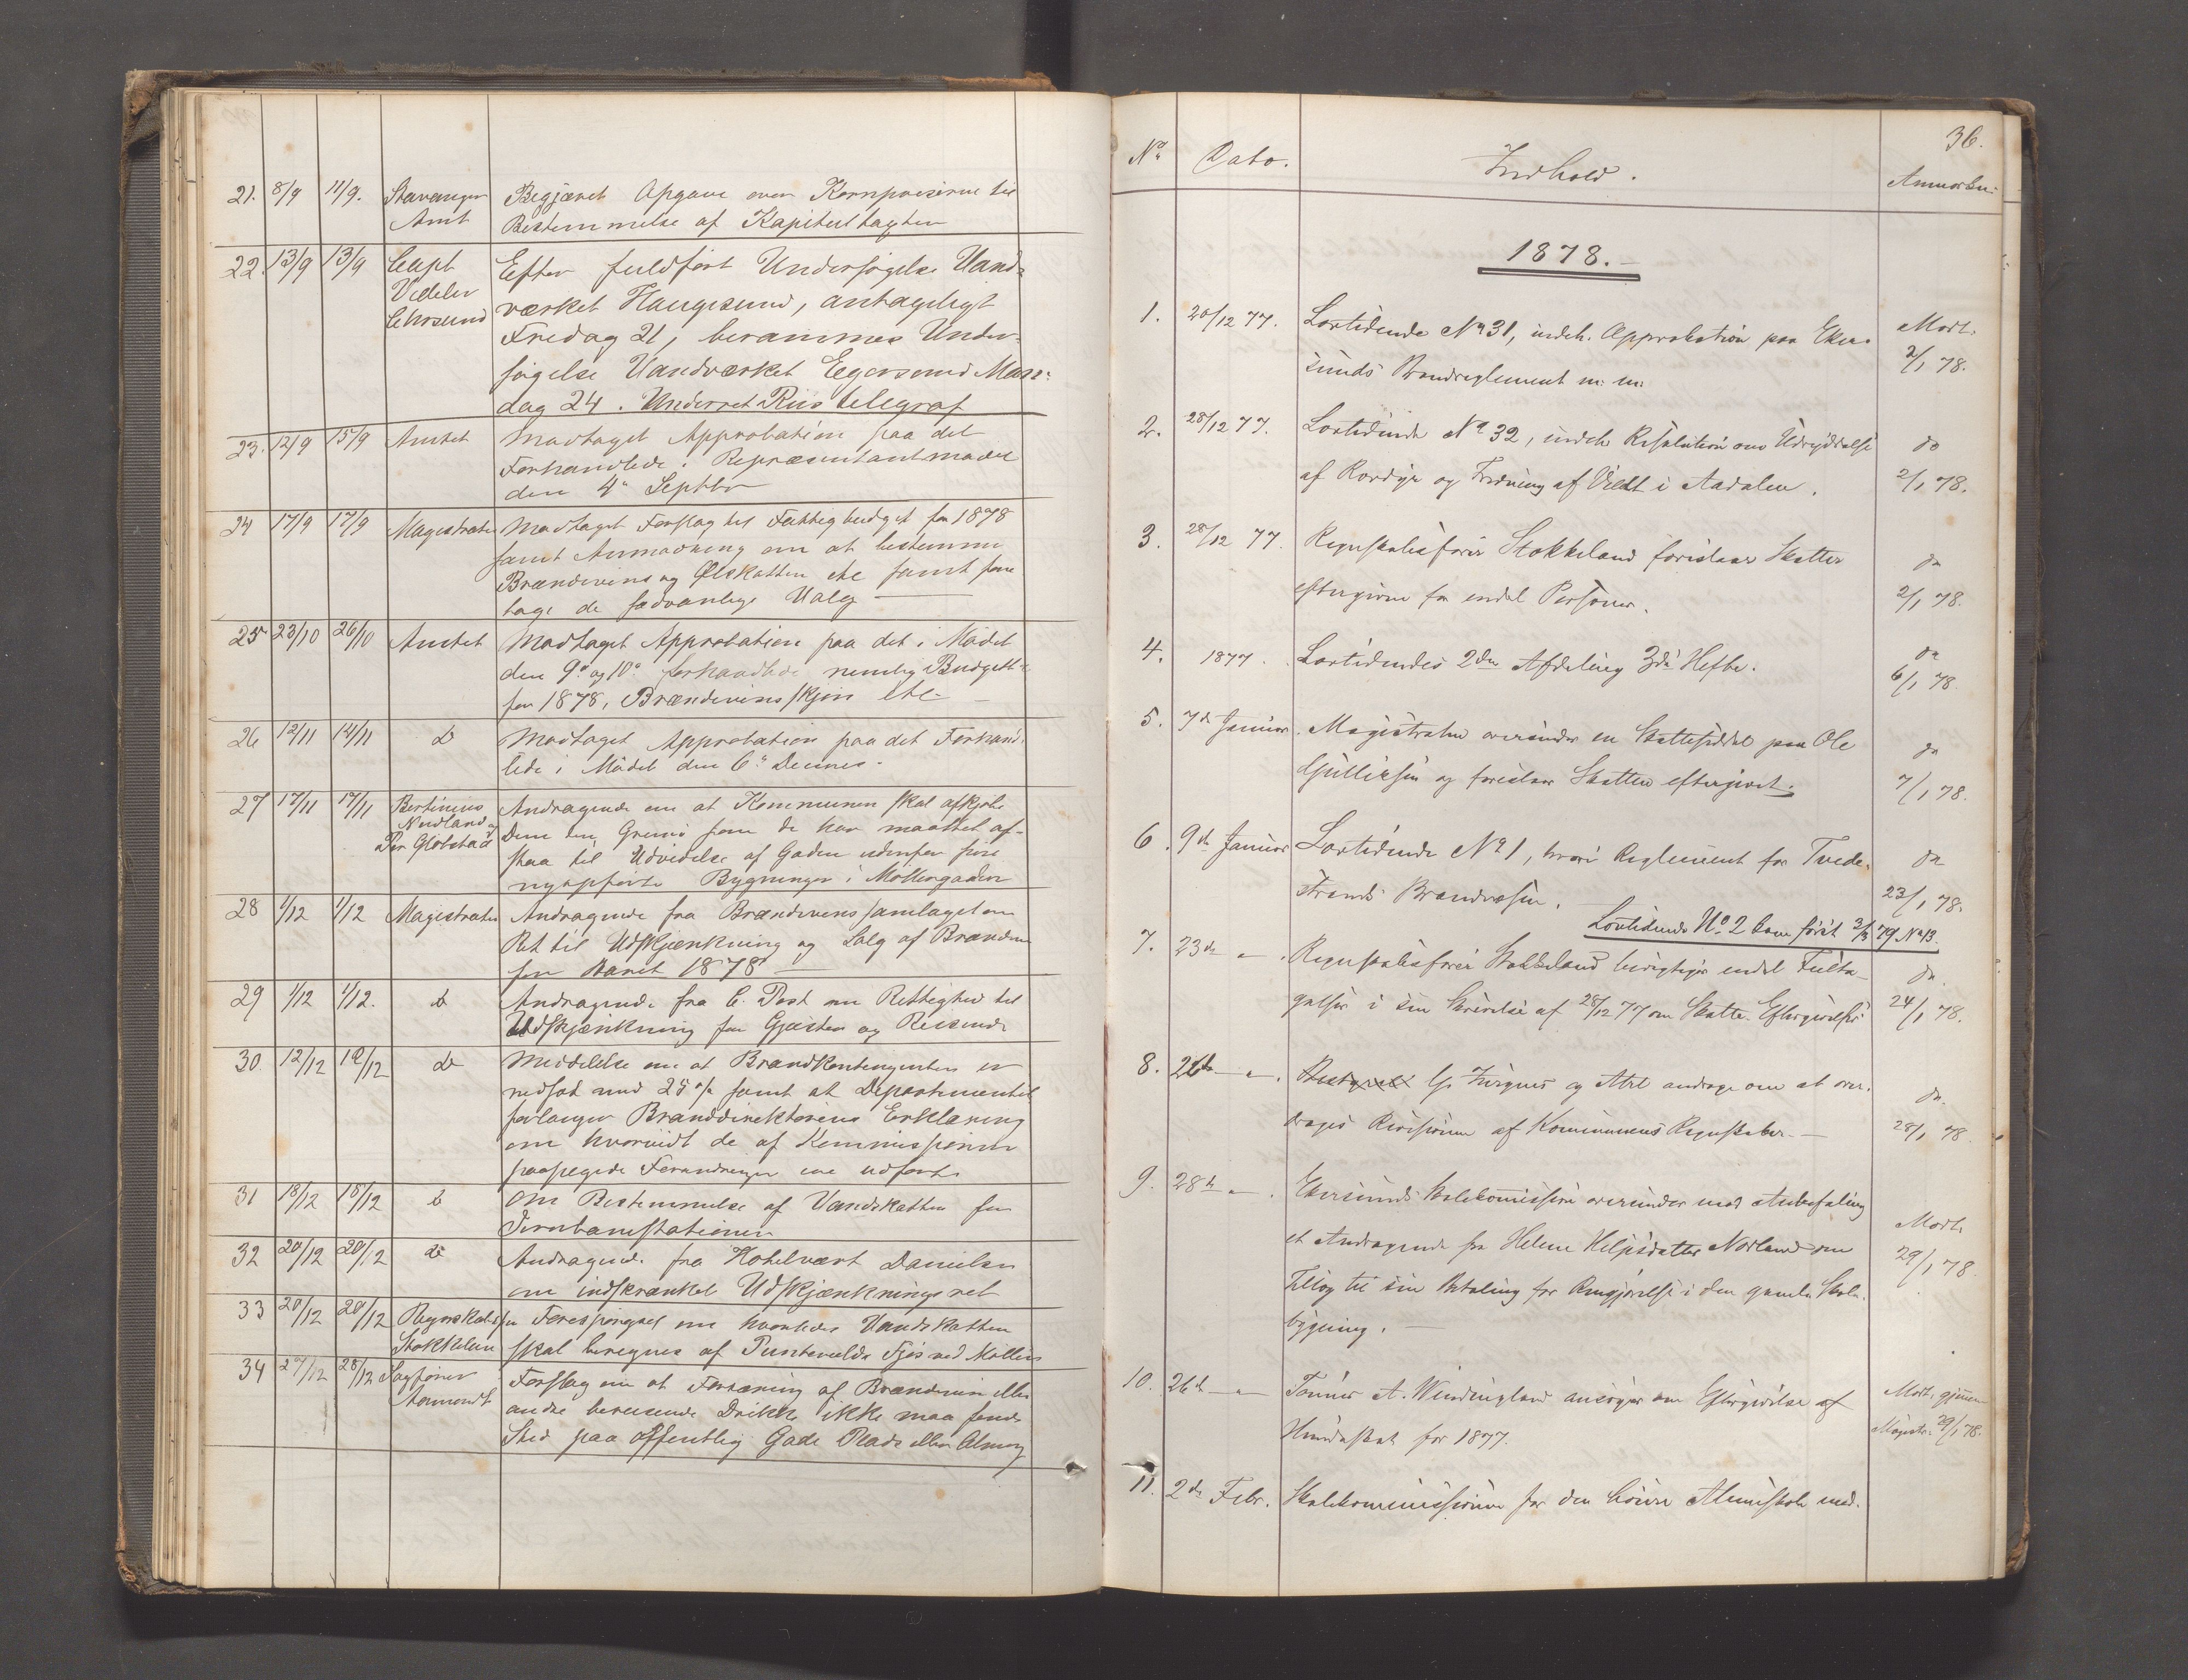 21. 8/9 11/9. Stavanger Begjæret Opgave over Kornpriserne til
Amt Bestemmelse af Kapitelstaxten
22. 13/9 13/9 Capt Efter fuldført Undersøgelse Vand-
Vedeler værket Haugesund, antageligt
Fredag 21, berammes Under-
søgelse Vandværket Egersund Man-
dag 24. Underret Riis telegraf
23. 12/9 15/9 Amtet Modtaget Approbation paa det
Forhandlede i Repræsentantmødet
den 4de Septbr
24 17/9 17/9 Magistraten Modtaget Forslag til Fattigbudget for 1878
samt Anmodning om at bestemme
Brændevins og Ølskatten etc samt fore
tage de sædvanlige Valg
25 23/10 26/10 Amtet Modtaget Approbation paa det i Mødet
den 9de og 10de forhandlede nemlig Budgett
for 1878, Brændevinsskjøn etc
26 12/11 14/11 do Modtaget Approbation paa det Forhand-
lede i Mødet den 6te Dennes.
27 17/11 17/11 Bertinius Andragende om at Kommunen skal afkjøbe
Nordland og Dem den Grund som de har maattet af-
Per Gløbstad staa til Udvidelse af Gaden udenfor sine
nyopførte Bygninger i Møllergaden
28 1/12 1/12 Magistraten Andragende fra Brændevinssamlaget om
Ret til Udskjænkning og Salg af Brændev
for Aaret 1878
29 1/12 1/12. do Andragende fra C. Post om Rettighed til
Udskjænkning for Gjæster og Reisende
30 12/12 12/12 do Meddelelse om at Brandkontingenten er
nedsat med 25 % samt at Departementet
forlanger Branddirektørens Erklæring
om hvorvidt de af Kommissionen
paapegede Forandringer ere udførte
31 18/12 18/12 do Om Bestemmelse af Vandskatten for
Jernbanestationen
32 20/12 20/12 do Andragende fra Hotelvært Danielsen
om indskrænket Udskjænkningsret
33 20/12 20/12 Regnskabsfø Forespørgsel om hvorledes Vandskatten
Stokkeland skal beregnes af Puntervolds Fjøs ved Møllen
34 27/12 28/12 Sagfører Forslag om at Fortæring af Brændevin eller
Aomundt andre berusende Drikke ikke maa finde
Sted paa offentlig Gade Plads eller Almvej
36.
No. Dato. Indhold. Anmærkn.
1878.
1. 20/12 77. Lovtidende No 31, indeh. Approbation paa Eker- Modt.
sunds Brandreglement m: m: 2/1 78.
2. 28/12 77. Lovtidende No 32, indeh. Resolution om Udryddelse do
af Rovdyr og Fredning af Vildt i Aadalen. 2/1 78.
3. 28/12 77. Regnskabsfører Stokkeland foreslaar Skatter do
eftergivne for endel Personer. 2/1 78.
4. 1877. Lovtidendes 2den Afdeling 3die Hefte. do
6/1 78
5. 7de Januar. Magistraten oversender en Skatteseddel paa Ole do
Gulliksen og foreslaar Skatten eftergivet. 7/1 78.
6. 9de Januar Lovtidende No 1, hvori Reglement for Tvede- do
strands Brandvæsen. 23/1 78.
Lovtidende No. 2 kom først 3/3 79 No 13.
7. 23de " . Regnskabsfører Stokkeland berigtiger endel Feilta- do.
gelser i sin Skrivelse af 28/12 77 om Skatte-Eftergivelse 24/1 78.
8. 26de " . G. Zwignes og Atre andrage om at over- do.
drages Revisionen af Kommunens Regnskaber. 28/1 78
9. 28de " . Ekersunds Skolekommission oversender med Anbefaling
et Andragende fra Helene Helgesdatter Norland om Modt.
Tillæg til sin Betaling for Rengjørelse i den gamle Skole- 29/1 78.
bygning.
10. 26de " Tønnes A. Windingland ansøger om Eftergivelse af Modt. gjennem
Hundeskat for 1877. Magistr. 29/1 78.
11. 2de Febr. Skolekommissionen for den høiere Almueskole med-